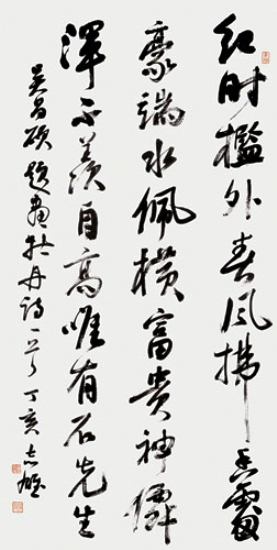 红时檻外春风拂香處
豪端水佩横富贵神僊
渾不羡自高唯有石先生
吴昌硕题畫牡丹诗一首丁亥志